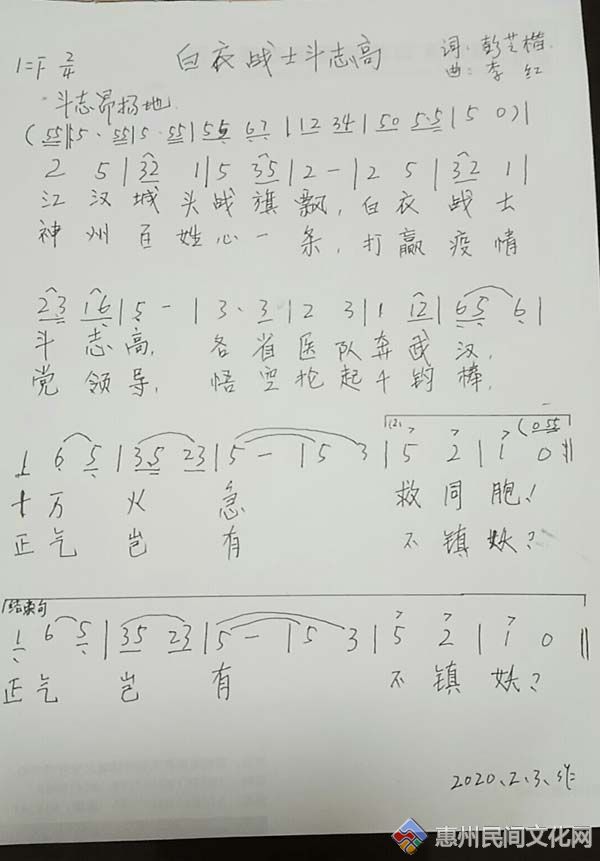 白衣战士斗志高
1=F 2/4
词：彭芝楷
曲：李红
斗志昂扬地
(55||5· 55|5· 55|55 67|12 34|50 5·5|5 0)|
2 5|32 1|5 35|2 -|2 5|32 1|
江汉城头战旗飘，白衣战士
神州百姓心一条，打赢疫情
23 16|5 -|3· 3|2 3|1 12|65 6|
斗志高，各省医队奔武汉，
党领导，悟空抡起千钧棒，
(0 55
1 6 5|35 23|5 -|5 3|5 2|1 0||
十万火急救同胞！
正气岂有不镇妖？
结束句
1 6 5|35 23|5 -|5 3|5 2|1 0||
正气岂有不镇妖？
2020.2.3.作
惠州民间文化网